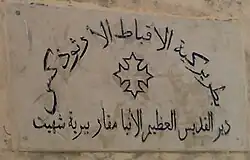 بطريركية الأقباط الأرثوذكس
دير القديس العظيم الأنبا مقار ببرية شهيت